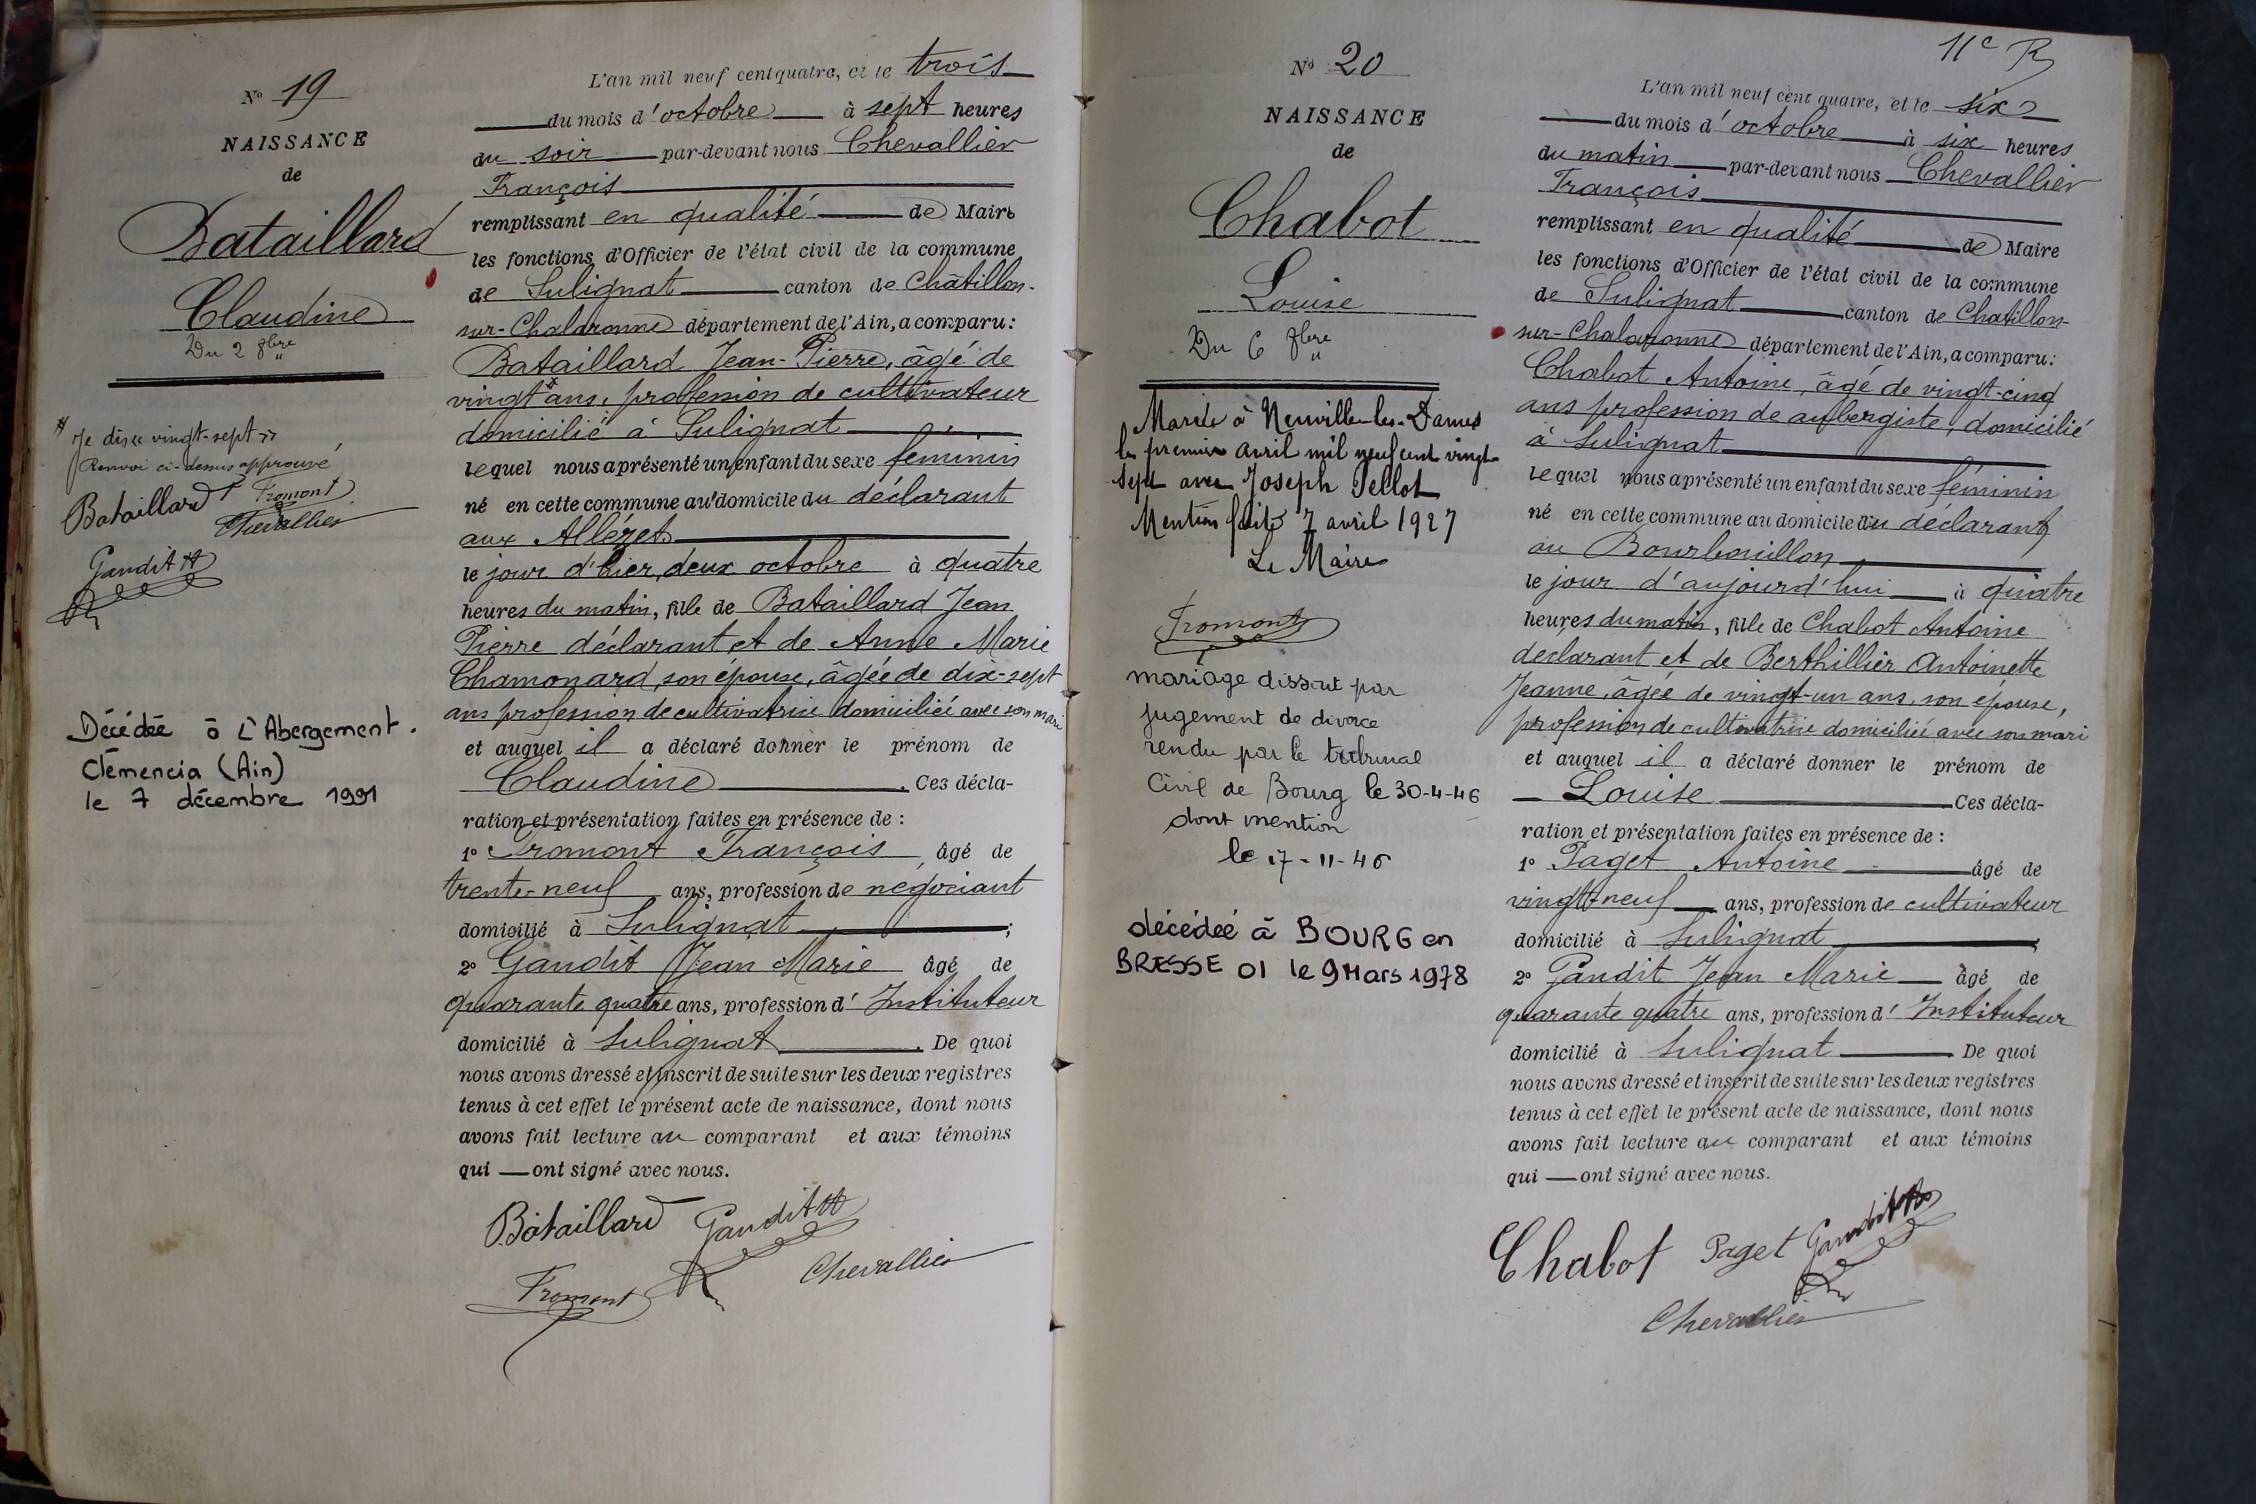 Nº 19
NAISSANCE
de
Bataillard
Claudine
Du 2 8bre
Je disee vingt-sept
Renvoi ci-dessus approuvé
Bataillard Fromont
Chevallier
Gandit
Décédée à L'Abergement.
Clémencia (Ain)
le 7 décembre 1991
L'an mil neuf cent quatre, et le trois
du mois d'octobre à sept heures
du soir par-devant nous Chevallier
François
remplissant en qualité de Maire
les fonctions d'Officier de l'état civil de la commune
de Sulignat canton de Châtillon-
sur-Chalaronne département de l'Ain, a comparu:
Bataillard Jean-Pierre, âgé de
vingt ans, profession de cultivateur
domicilié à Sulignat
lequel nous a présenté un enfant du sexe féminin
né en cette commune au domicile du déclarant
aux Allézets
le jour d'hier, deux octobre à quatre
heures du matin, fille de Bataillard Jean
Pierre déclarant et de Anne Marie
Chamonard, son épouse, âgée de dix-sept
ans profession de cultivatrice domiciliée avec son mari
et auquel il a déclaré donner le prénom de
Claudine. Ces décla-
ration et présentation faites en présence de :
1º Fromont François, âgé de
trente-neuf ans, profession de négociant
domicilié à Sulignat ;
2º Gandit Jean Marie âgé de
quarante quatre ans, profession d'Instituteur
domicilié à Sulignat. De quoi
nous avons dressé et inscrit de suite sur les deux registres
tenus à cet effet le présent acte de naissance, dont nous
avons fait lecture au comparant et aux témoins
qui ont signé avec nous.
Bataillard Gandit
Fromont Chevallier
11e R
Nº 20
NAISSANCE
de
Chabot
Louise
Du 6 8bre
Mariée à Neuville-les-Dames
le premier avril mil neuf cent vingt-
sept avec Joseph Pellot
Mention faite 7 avril 1927
Le Maire
Fromont
mariage dissout par
jugement de divorce
rendu par le tribunal
Civil de Bourg le 30-4-46
dont mention
le 17-11-46
décédée à BOURG en
BRESSE 01 le 9 Mars 1978
L'an mil neuf cent quatre, et le six
du mois d'octobre à six heures
du matin par-devant nous Chevallier
François
remplissant en qualité de Maire
les fonctions d'Officier de l'état civil de la commune
de Sulignat canton de Chatillon-
sur-Chalaronne département de l'Ain, a comparu:
Chabot Antoine, âgé de vingt-cinq
ans profession de aubergiste, domicilié
à Sulignat
lequel nous a présenté un enfant du sexe féminin
né en cette commune au domicile du déclarant
au Bourbouillon
le jour d'aujourd'hui à quatre
heures du matin, fille de Chabot Antoine
déclarant et de Berthillier Antoinette
Jeanne, âgée de vingt-un ans, son épouse,
profession de cultivatrice domiciliée avec son mari
et auquel il a déclaré donner le prénom de
Louise Ces décla-
ration et présentation faites en présence de :
1º Paget Antoine âgé de
vingt-neuf ans, profession de cultivateur
domicilié à Sulignat ;
2º Gandit Jean Marie âgé de
quarante quatre ans, profession d'Instituteur
domicilié à Sulignat De quoi
nous avons dressé et inscrit de suite sur les deux registres
tenus à cet effet le présent acte de naissance, dont nous
avons fait lecture au comparant et aux témoins
qui ont signé avec nous.
Chabot Paget Gandit
Chevallier